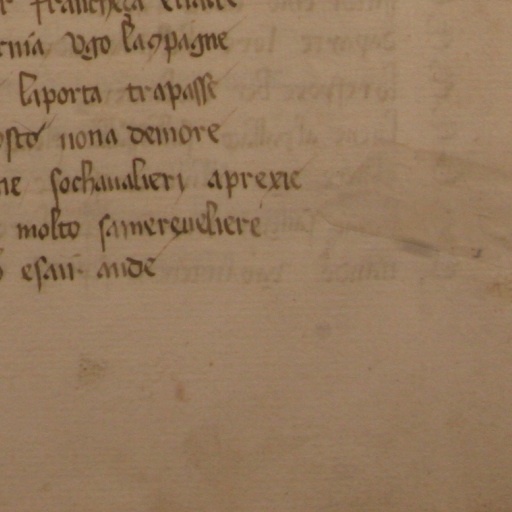 francheça
rnia Ugo lampagne
laporta trapasse
osto nona demore
ne sochaualieri aprexie
molto samereueliere
esaii ande